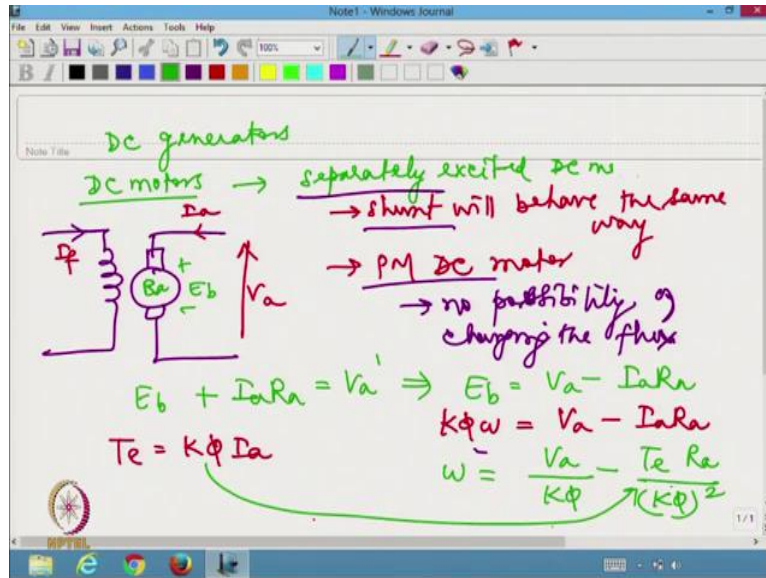 Note1 - Windows Journal
File Edit View Insert Actions Tools Help
100%
B I
Note Title
DC generators
DC motors → separately excited DC m
→ shunt will behave the same way
→ PM DC motor
→ no possibility of
changing the flux
If
Ia
Ra
+
Eb
-
Va
Eb + IaRa = Va ⇒ Eb = Va - IaRa
KΦω = Va - IaRa
Te = KΦ Ia
ω = Va/KΦ - Te Ra/(KΦ)²
NPTEL
1/1